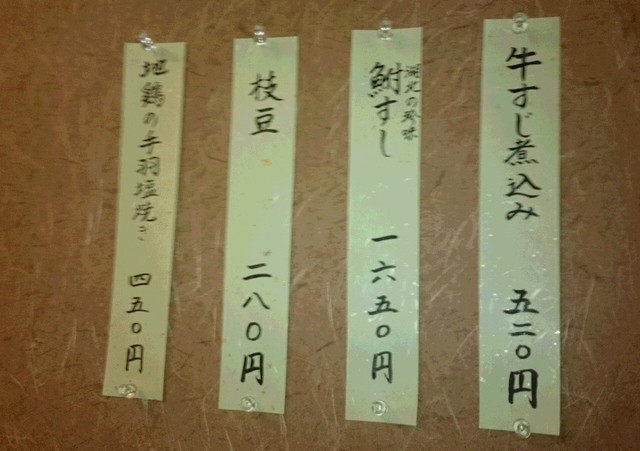 牛すじ煮込み 五二〇円
湖北の珍味
鮒すし 一六五〇円
枝豆 二八〇円
地鶏の手羽塩焼き 四五〇円